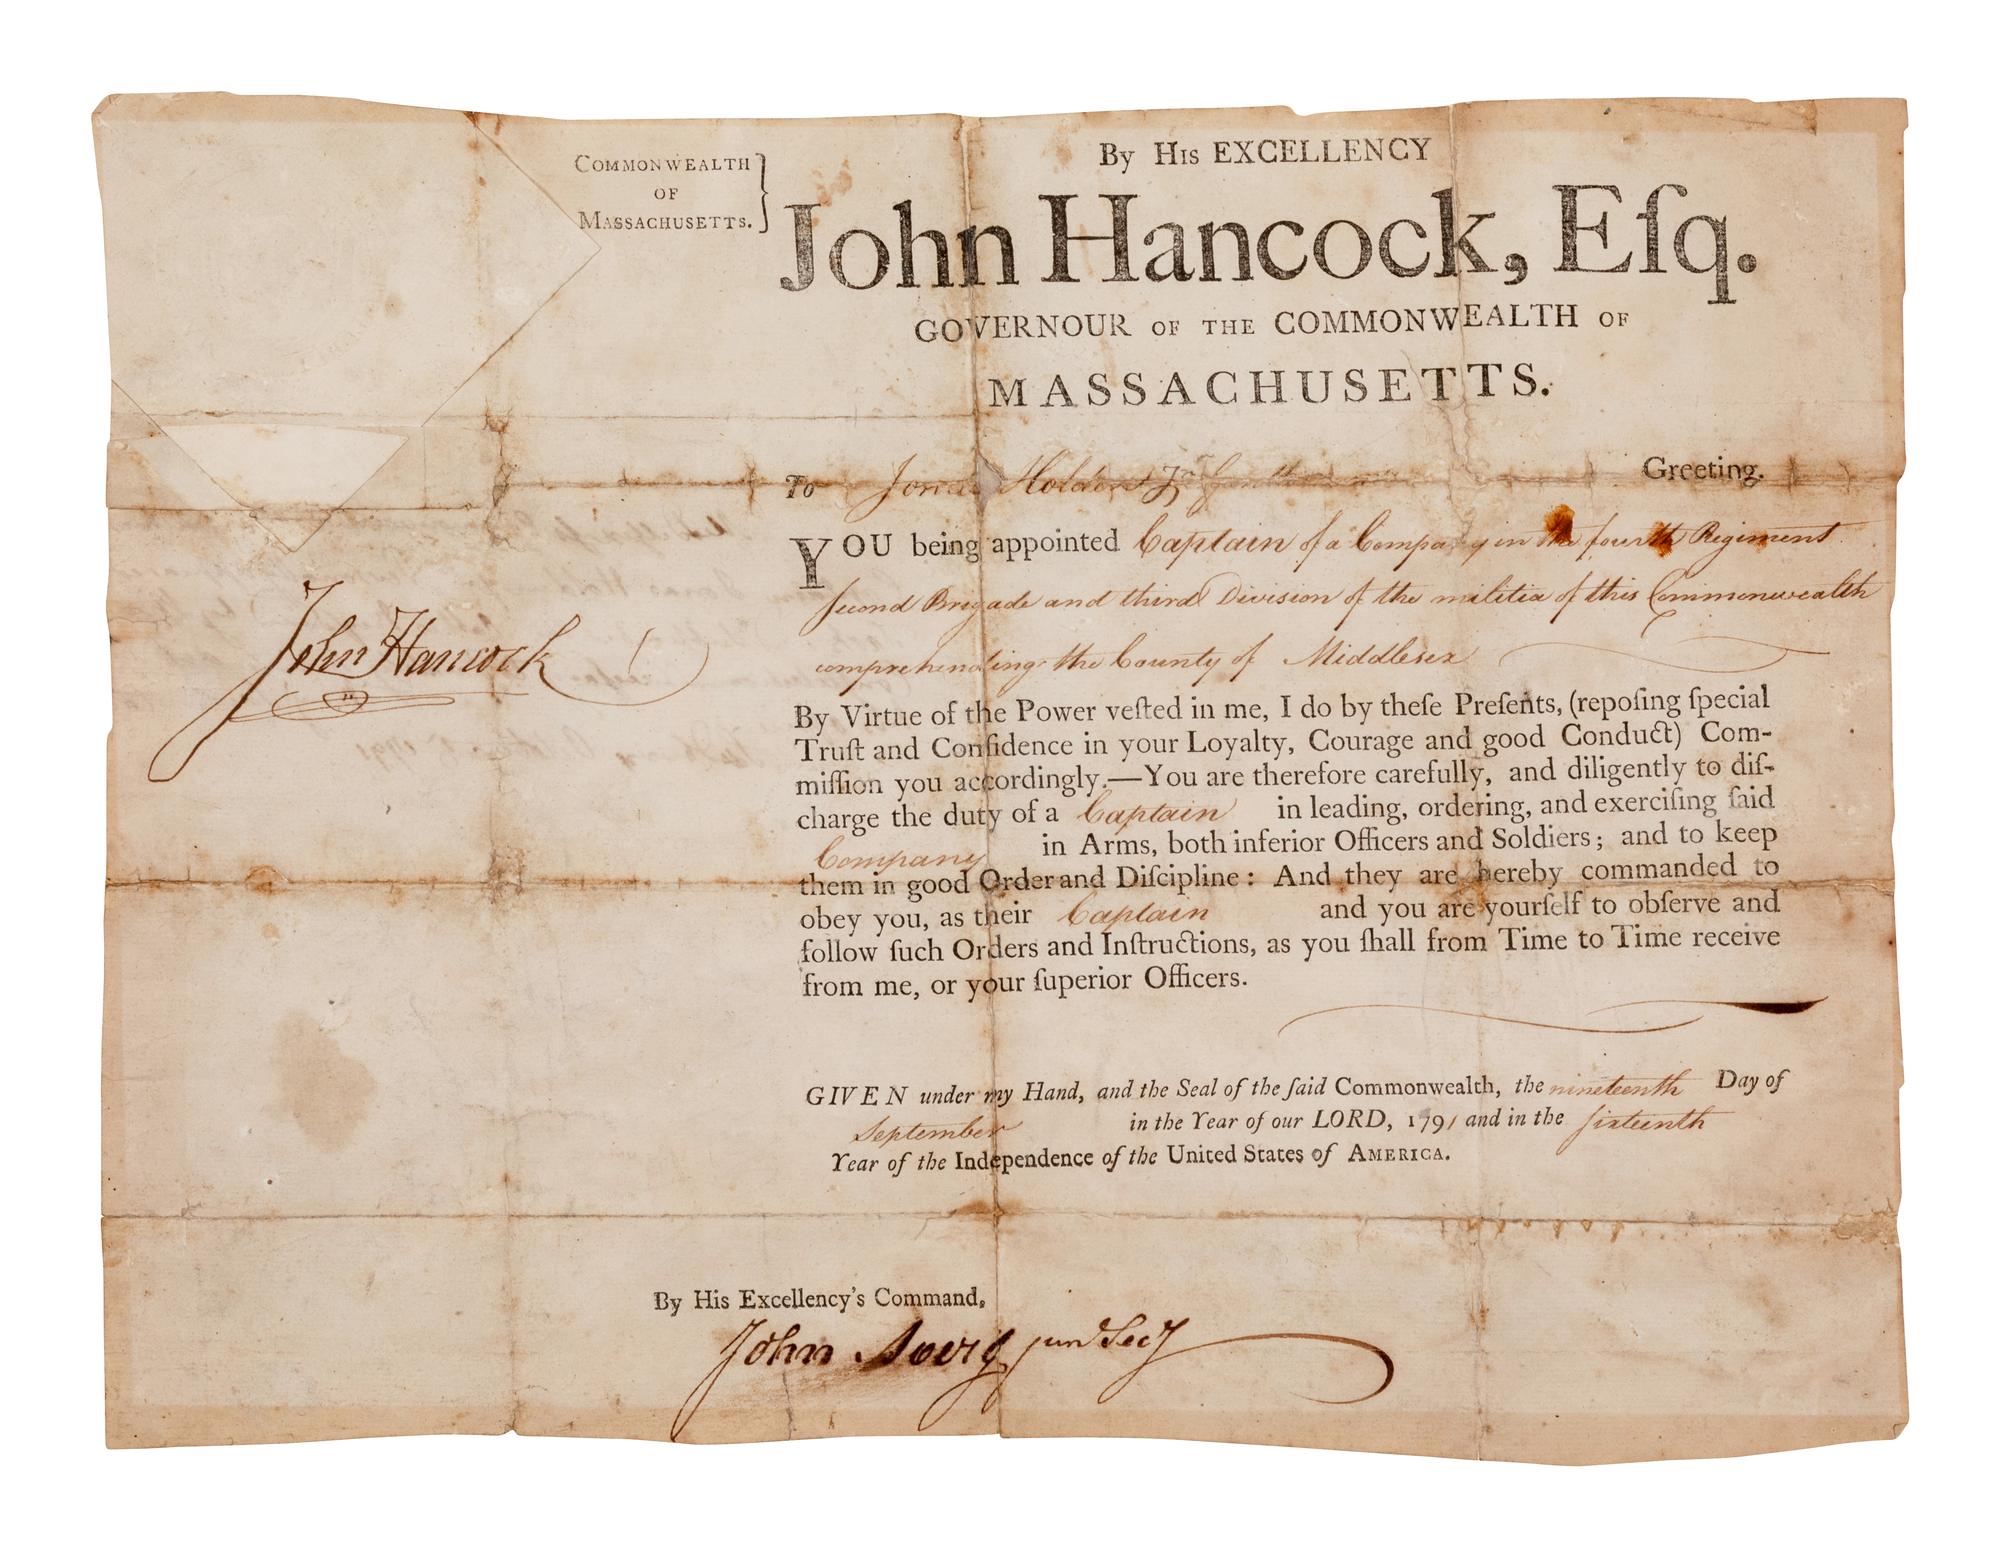 COMMONWEALTH
OF
MASSACHUSETTS.
By His EXCELLENCY
John Hancock, Eſq.
GOVERNOUR OF THE COMMONWEALTH OF
MASSACHUSETTS.
To Jonas Holden Jr Greeting.
YOU being appointed Captain of a Company in the fourth Regiment
second Brigade and third Division of the militia of this Commonwealth
comprehending the County of Middlesex
By Virtue of the Power veſted in me, I do by theſe Preſents, (repoſing ſpecial
Truſt and Confidence in your Loyalty, Courage and good Conduct) Com-
miſſion you accordingly.—You are therefore carefully, and diligently to diſ-
charge the duty of a Captain in leading, ordering, and exerciſing ſaid
Company in Arms, both inferior Officers and Soldiers; and to keep
them in good Order and Diſcipline: And they are hereby commanded to
obey you, as their Captain and you are yourſelf to obſerve and
follow ſuch Orders and Inſtructions, as you ſhall from Time to Time receive
from me, or your ſuperior Officers.
John Hancock
GIVEN under my Hand, and the Seal of the ſaid Commonwealth, the nineteenth Day of
September in the Year of our LORD, 1791 and in the ſixteenth
Year of the Independence of the United States of AMERICA.
By His Excellency's Command,
John Avery junr Secy